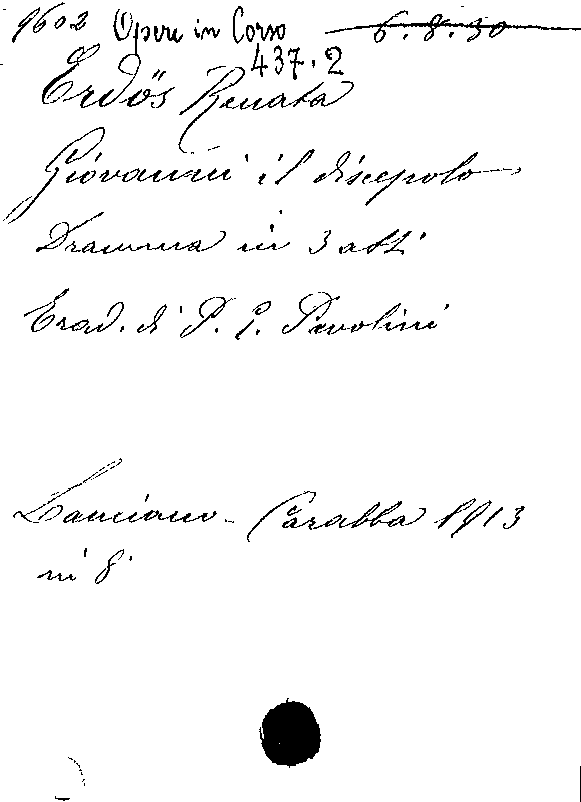 9602 Opere in Corso 6.8.30
437.2
Erdös Renata
Giovanni il discepolo
Dramma in 3 atti
Trad. di P. E. Pavolini
Lanciano - Carabba 1913
in 8°